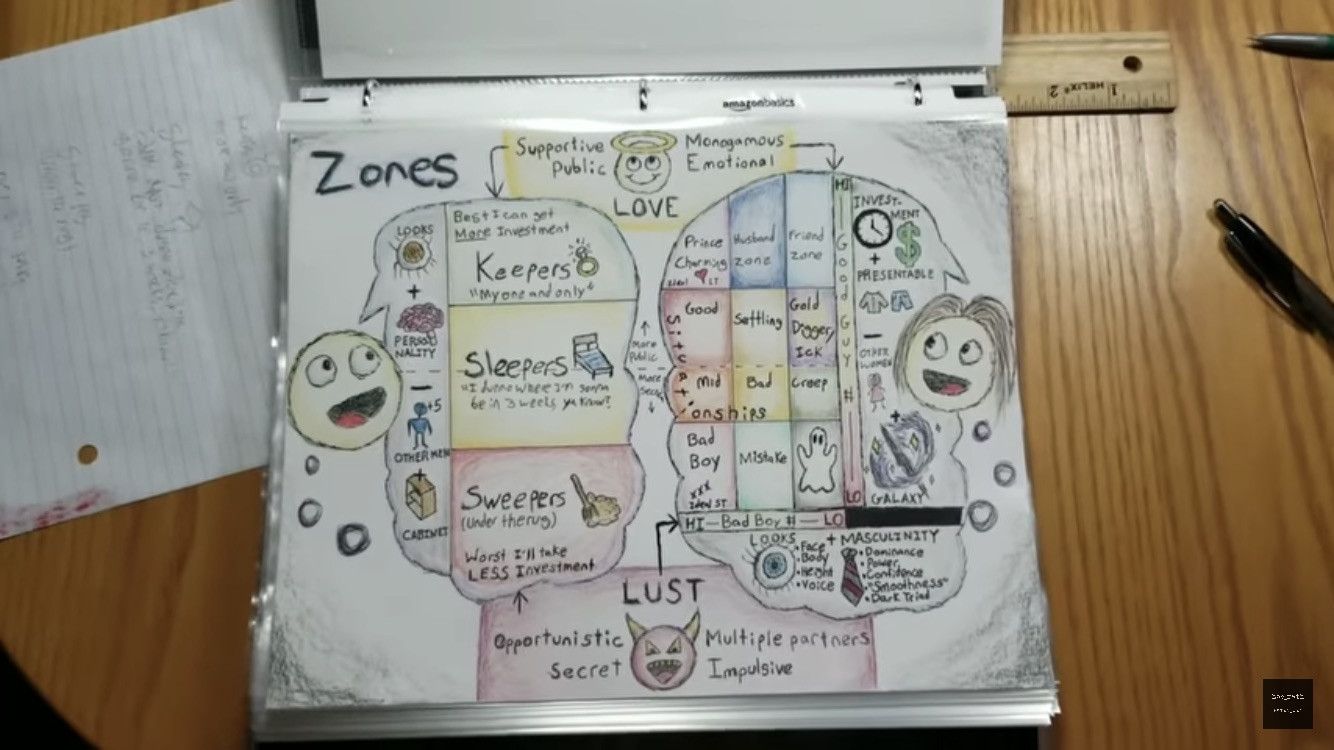 amazonbasics
HELIX
1
2
Zones
Supportive
Public
Monogamous
Emotional
LOVE
LOOKS
+
PERSONALITY
-
+5
OTHER MEN
+
CABINET
Best I can get
More Investment
Keepers
"My one and only"
Sleepers
"I dunno where I'm gonna
be in 3 weeks, ya know?"
Sweepers
(Under the rug)
Worst I'll take
LESS Investment
More
Public
More
Secret
Prince
Charming
Ideal LT
Husband
zone
Friend
zone
Good
Settling
Gold
Digger,
Ick
Mid
Bad
Creep
Situationships
Bad
Boy
XXX
Ideal ST
Mistake
HI
Good
Guy
#
LO
HI-Bad Boy #-LO
INVEST-
MENT
$
+
PRESENTABLE
-
OTHER
WOMEN
+
GALAXY
LOOKS
• Face
• Body
• Height
• Voice
+ MASCULINITY
• Dominance
• Power
• Confidence
• "Smoothness"
• Dark Triad
LUST
Opportunistic
Secret
Multiple partners
Impulsive